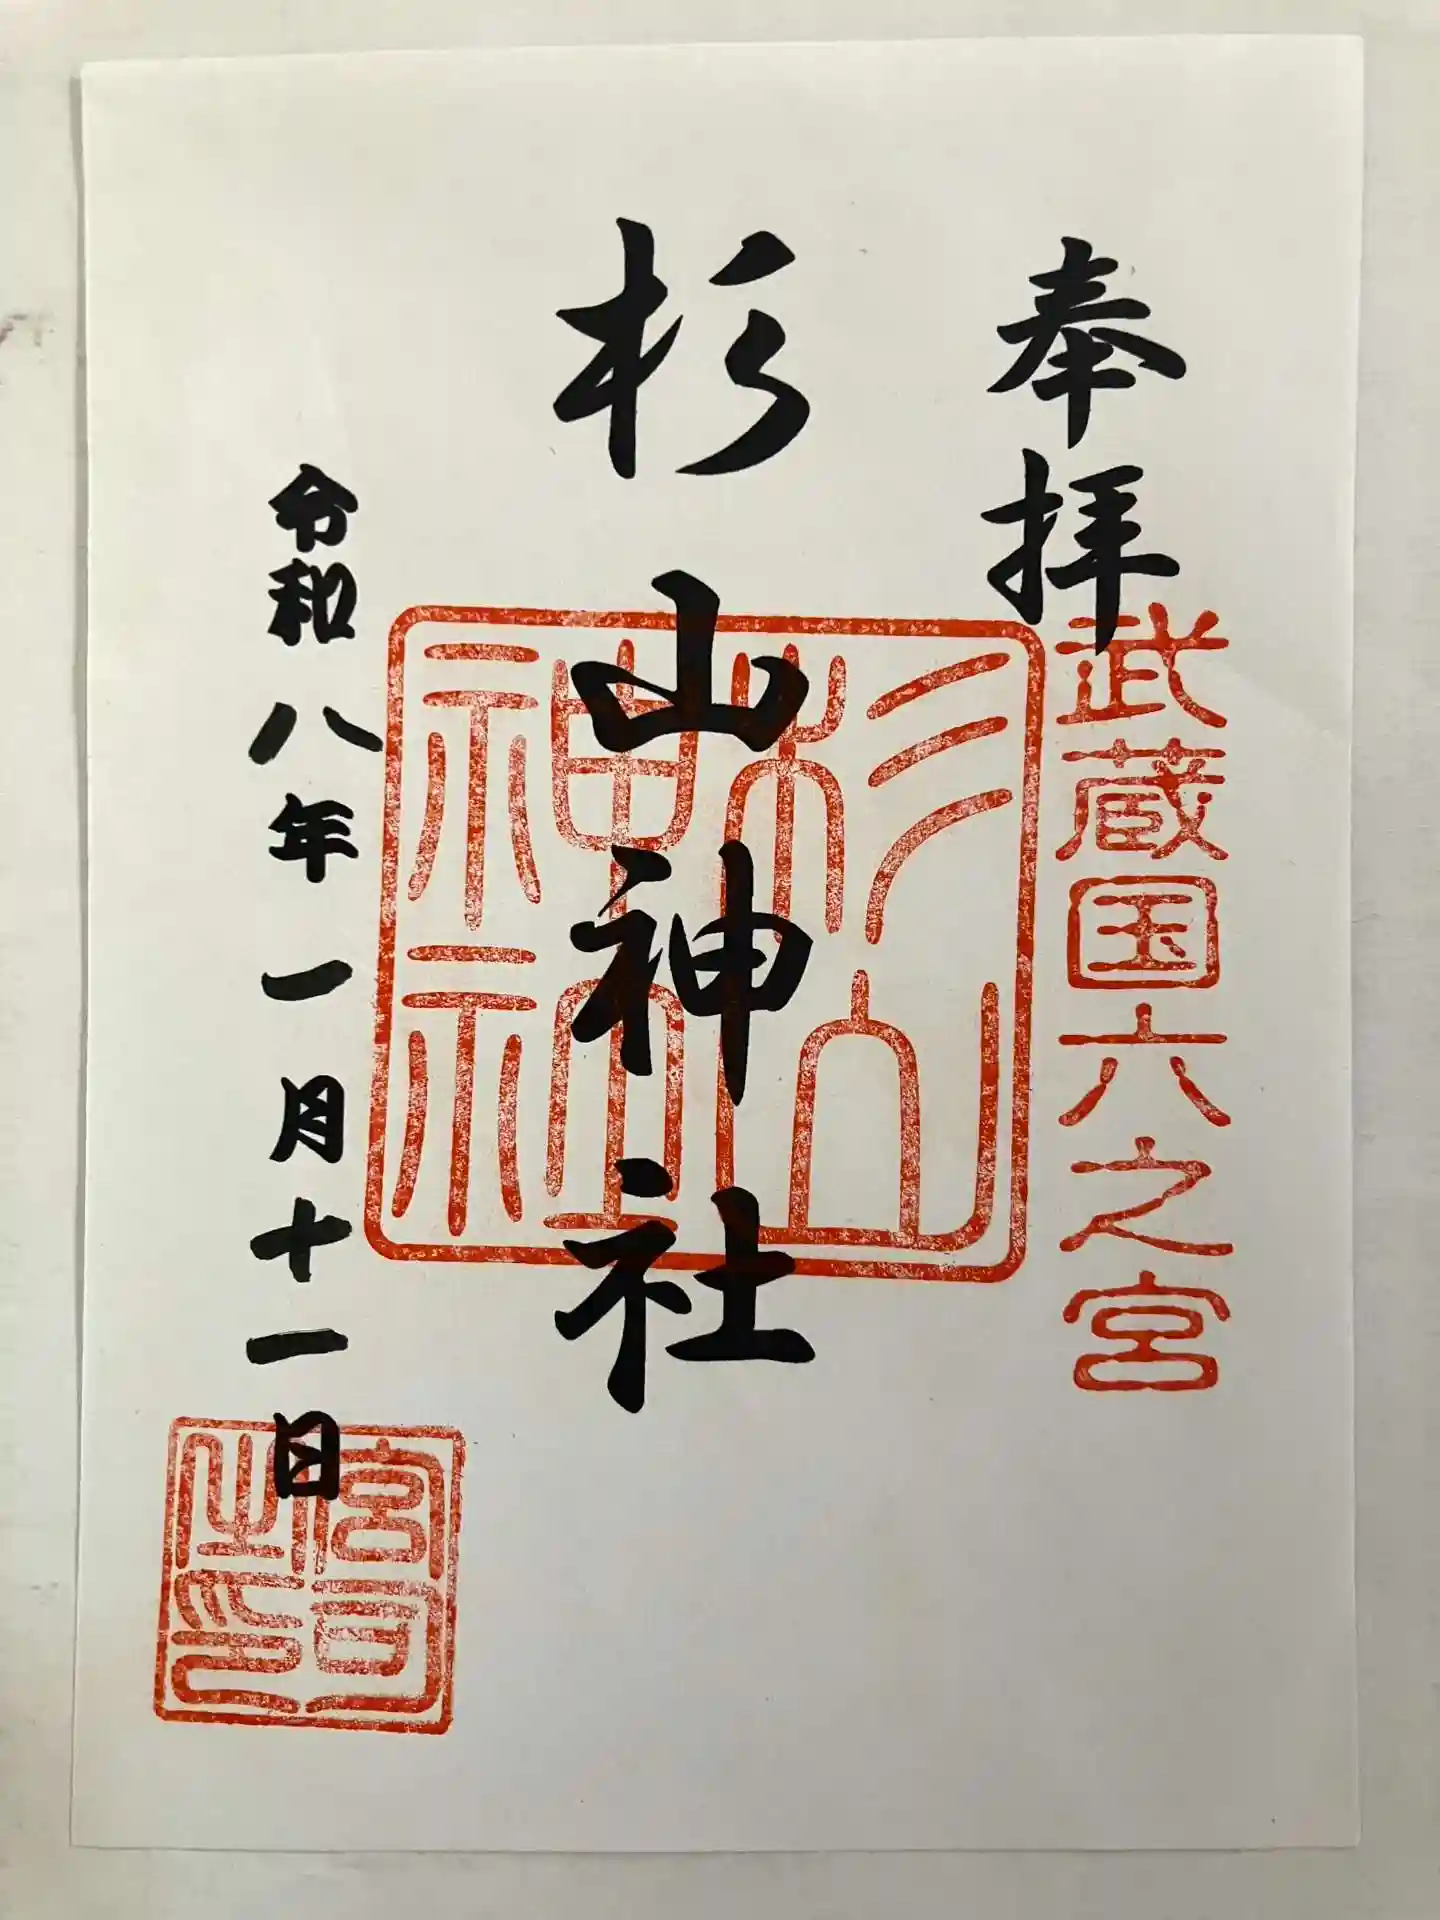 奉拝
武蔵国六之宮
杉山神社
杉山
神社
令和八年一月十一日
宮司
之印